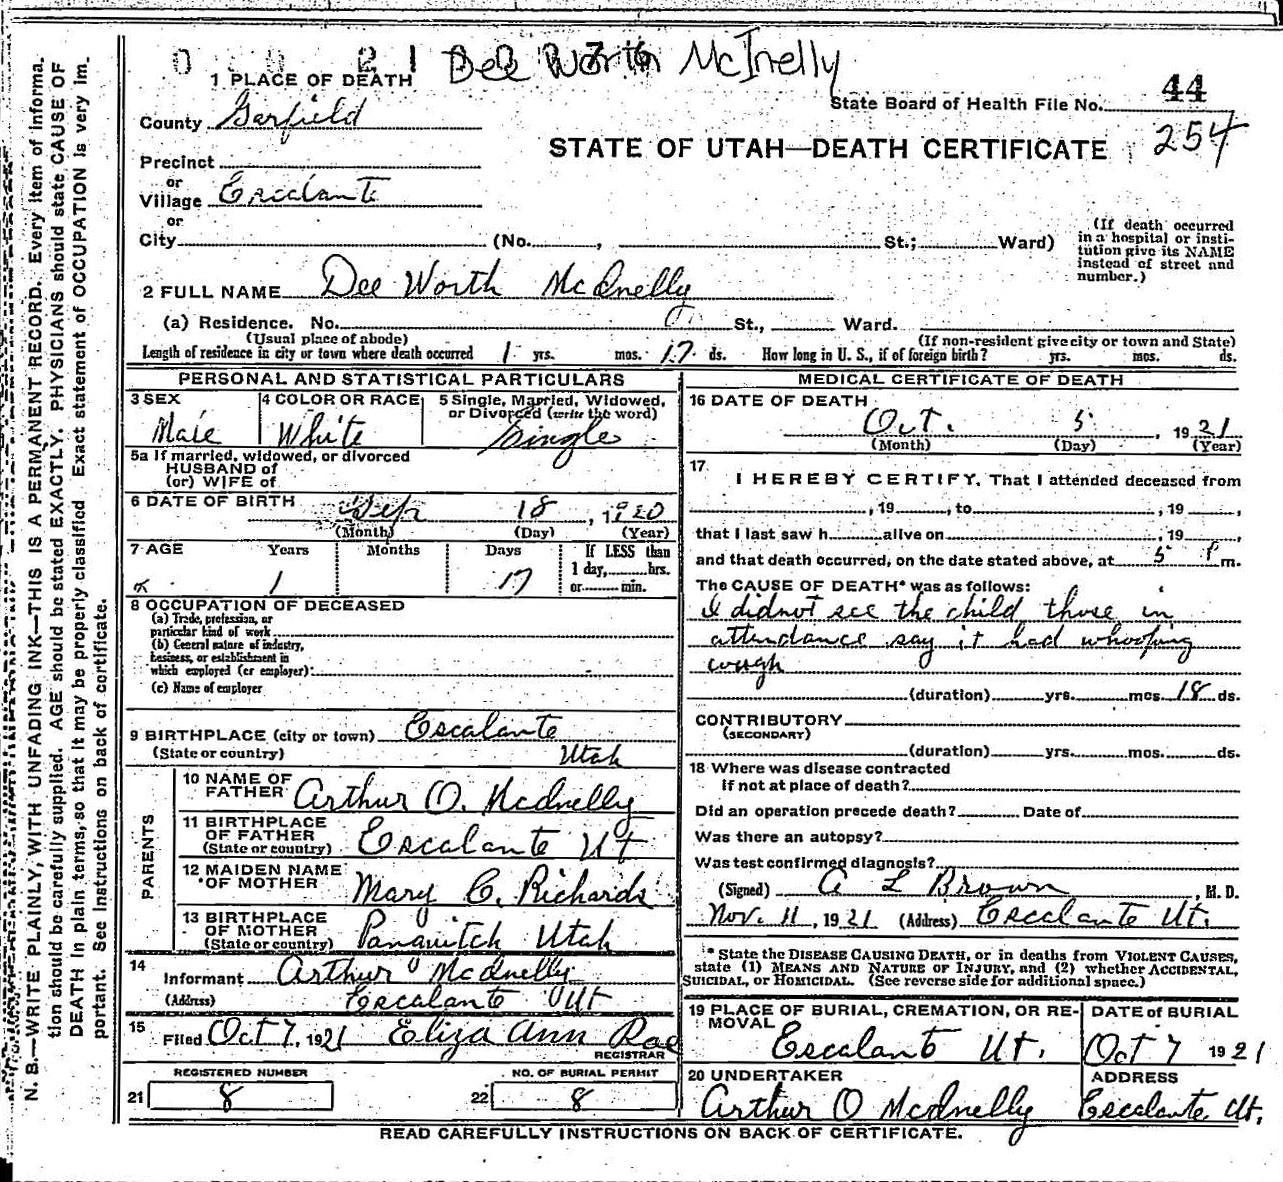 0 2 1 Dee Worth McInelly
1 PLACE OF DEATH
44
State Board of Health File No.
County Garfield
STATE OF UTAH—DEATH CERTIFICATE 254
Precinct
or
Village Escalante
or
City (No. , St.; Ward)
(If death occurred in a hospital or insti-
tution give its NAME
instead of street and
number.)
2 FULL NAME Dee Worth McInelly
(a) Residence. No. St., Ward.
(Usual place of abode) (If non-resident give city or town and State)
Length of residence in city or town where death occurred 1 yrs. mos. 17 ds. How long in U. S., if of foreign birth? yrs. mos. ds.
PERSONAL AND STATISTICAL PARTICULARS
3 SEX 4 COLOR OR RACE 5 Single, Married, Widowed,
or Divorced (write the word)
Male White Single
5a If married, widowed, or divorced
HUSBAND of
(or) WIFE of
6 DATE OF BIRTH Sep 18, 1920
(Month) (Day) (Year)
7 AGE Years Months Days If LESS than
1 day, hrs.
1 17 or min.
8 OCCUPATION OF DECEASED
(a) Trade, profession, or
particular kind of work
(b) General nature of industry,
business, or establishment in
which employed (or employer)
(c) Name of employer
9 BIRTHPLACE (city or town) Escalante
(State or country) Utah
PARENTS
10 NAME OF
FATHER Arthur O. McInelly
11 BIRTHPLACE
OF FATHER
(State or country) Escalante Ut
12 MAIDEN NAME
OF MOTHER Mary C. Richards
13 BIRTHPLACE
OF MOTHER
(State or country) Panguitch Utah
14
Informant Arthur McInelly
(Address) Escalante Ut
15
Filed Oct 7, 1921 Eliza Ann Rae
REGISTRAR
REGISTERED NUMBER NO. OF BURIAL PERMIT
21 8 22 8
MEDICAL CERTIFICATE OF DEATH
16 DATE OF DEATH
Oct. 5, 1921
(Month) (Day) (Year)
17
I HEREBY CERTIFY, That I attended deceased from
, 19 , to , 19 ,
that I last saw h alive on , 19 ,
and that death occurred, on the date stated above, at 5 P m.
The CAUSE OF DEATH* was as follows:
I did not see the child those in
attendance say it had whooping
cough
(duration) yrs. mos. 18 ds.
CONTRIBUTORY
(SECONDARY)
(duration) yrs. mos. ds.
18 Where was disease contracted
if not at place of death?
Did an operation precede death? Date of
Was there an autopsy?
Was test confirmed diagnosis?
(Signed) A L Brown, M. D.
Nov. 11, 1921 (Address) Escalante Ut.
* State the DISEASE CAUSING DEATH, or in deaths from VIOLENT CAUSES,
state (1) MEANS AND NATURE OF INJURY, and (2) whether ACCIDENTAL,
SUICIDAL, or HOMICIDAL. (See reverse side for additional space.)
19 PLACE OF BURIAL, CREMATION, OR RE-
MOVAL
Escalante Ut.
DATE of BURIAL
Oct 7 1921
20 UNDERTAKER
Arthur O McInelly
ADDRESS
Escalante, Ut.
READ CAREFULLY INSTRUCTIONS ON BACK OF CERTIFICATE.
N. B.—WRITE PLAINLY, WITH UNFADING INK—THIS IS A PERMANENT RECORD. Every item of informa-
tion should be carefully supplied. AGE should be stated EXACTLY. PHYSICIANS should state CAUSE OF
DEATH in plain terms, so that it may be properly classified. Exact statement of OCCUPATION is very im-
portant. See instructions on back of certificate.